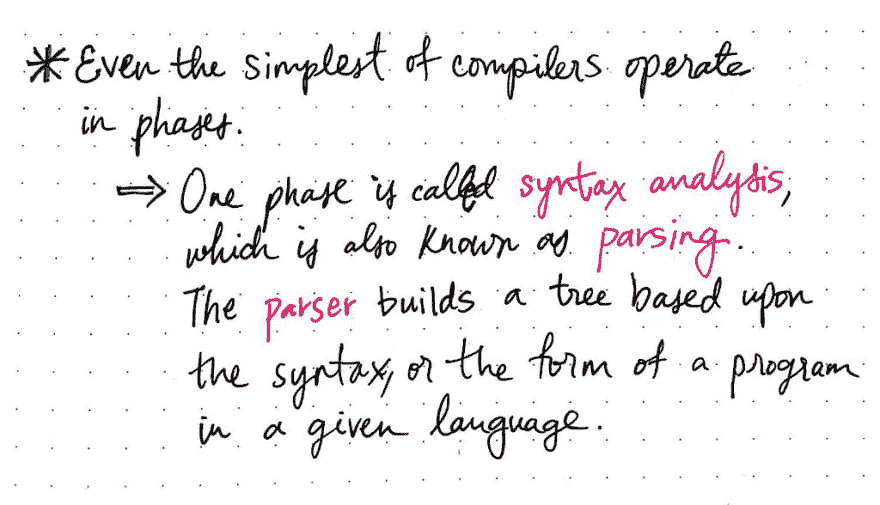 * Even the simplest of compilers operate
in phases.
⇒ One phase is called syntax analysis,
which is also known as parsing.
The parser builds a tree based upon
the syntax, or the form of a program
in a given language.